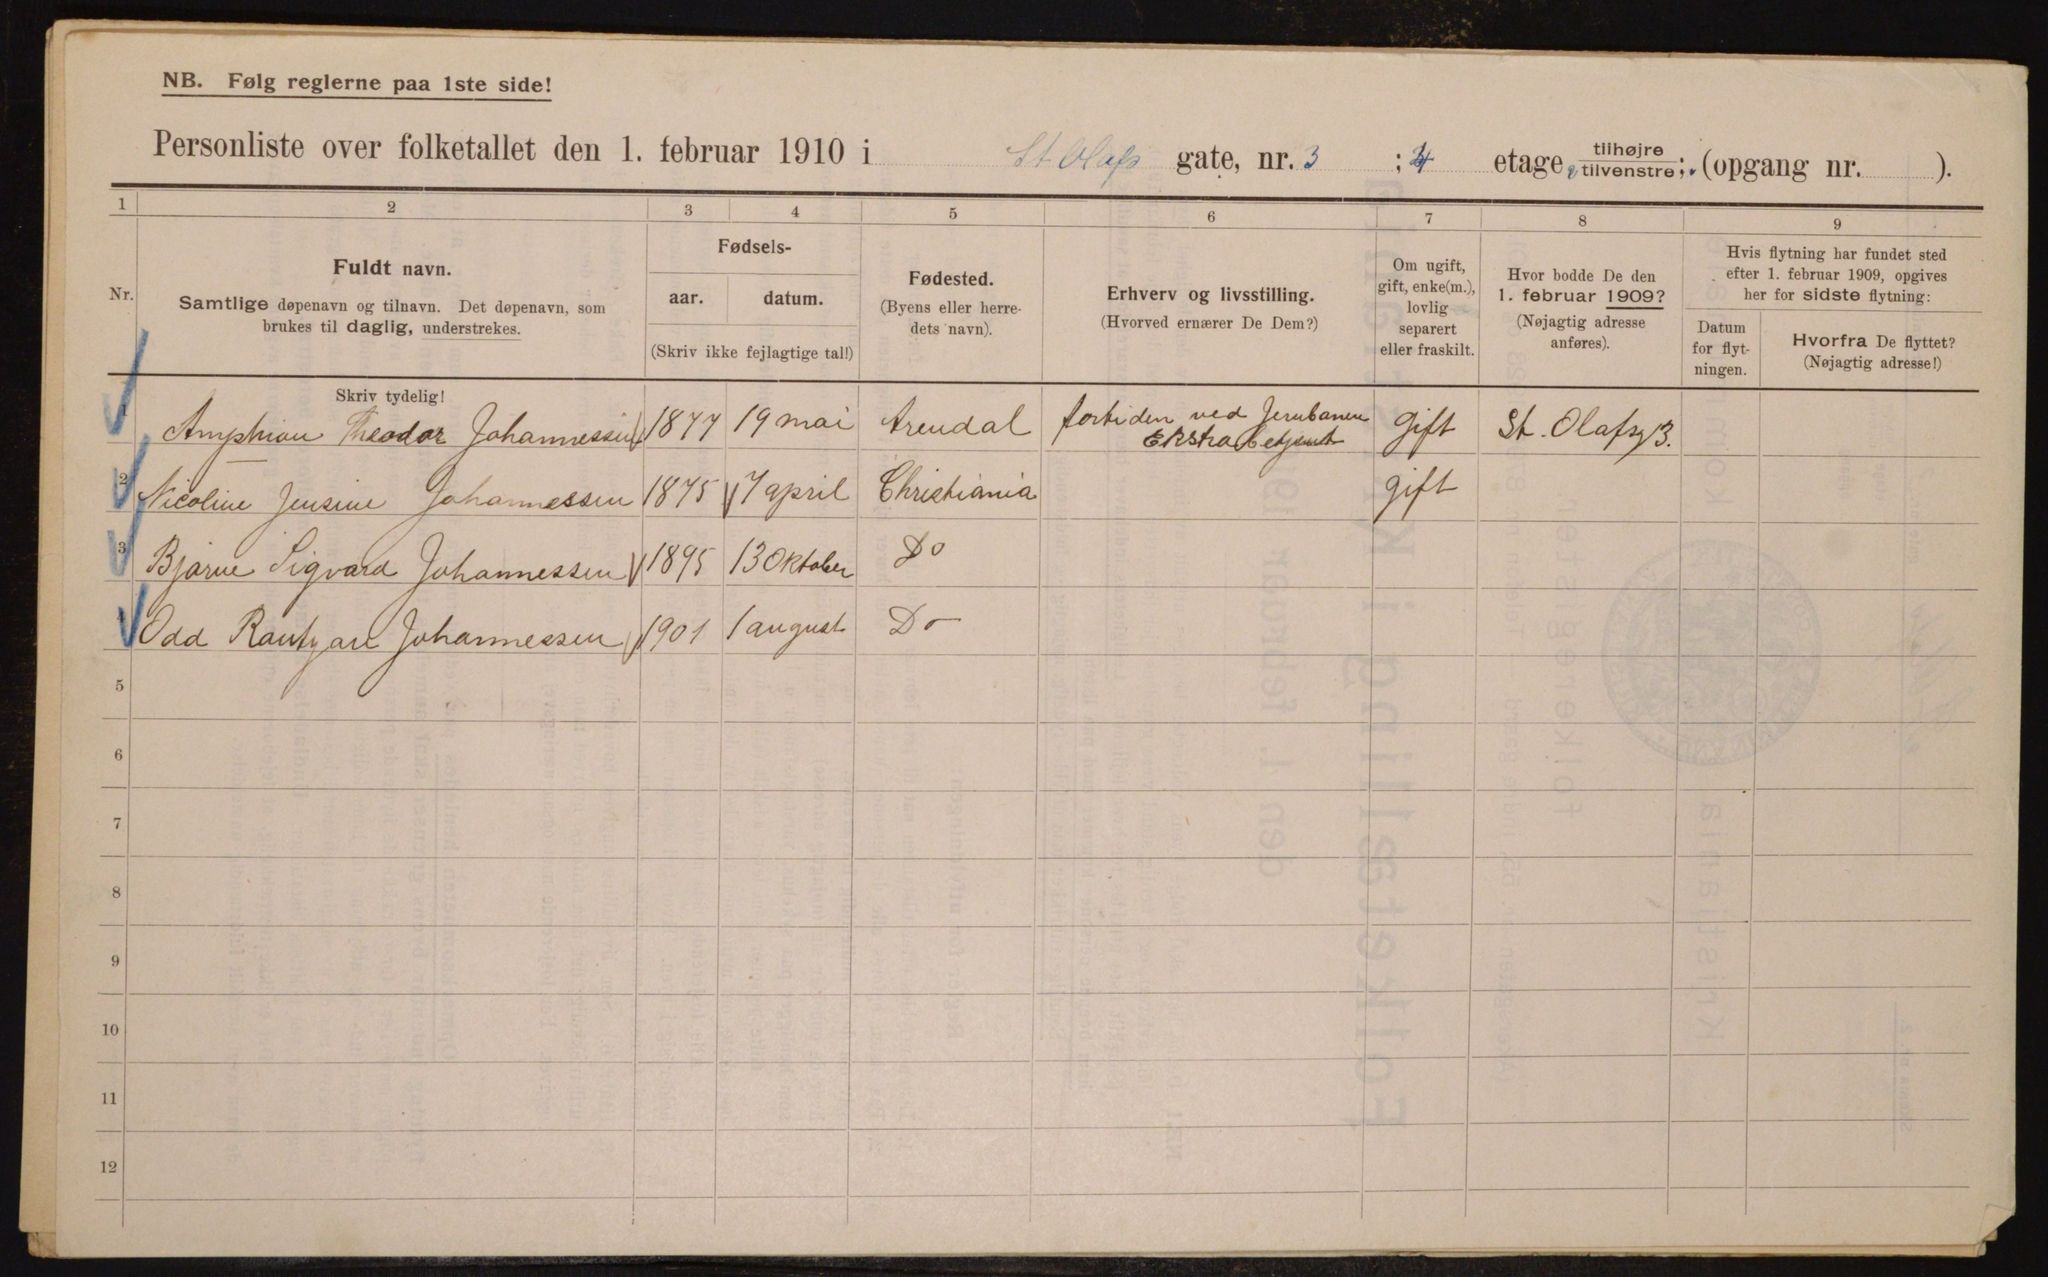 NB. Følg reglerne paa 1ste side!
Personliste over folketallet den 1. februar 1910 i St Olafs gate, nr. 3 ; 4 etage, tilhøjre / tilvenstre; (opgang nr. ).
1 2 3 4 5 6 7 8 9
Nr.
Fuldt navn.
Samtlige døpenavn og tilnavn. Det døpenavn, som
brukes til daglig, understrekes.
Skriv tydelig!
Fødsels-
aar. datum.
(Skriv ikke fejlagtige tal!)
Fødested.
(Byens eller herre-
dets navn).
Erhverv og livsstilling.
(Hvorved ernærer De Dem?)
Om ugift,
gift, enke(m.),
lovlig
separert
eller fraskilt.
Hvor bodde De den
1. februar 1909?
(Nøjagtig adresse
anføres).
Hvis flytning har fundet sted
efter 1. februar 1909, opgives
her for sidste flytning:
Datum
for flyt-
ningen.
Hvorfra De flyttet?
(Nøjagtig adresse!)
1 Amphion Theodor Johannessen 1877 19 mai Arendal fortiden ved Jernbanen Gift St. Olafsg 3.
Ekstrabetjent
2 Nicoline Jensine Johannessen 1875 7 april Christiania gift
3 Bjarne Sigvard Johannessen 1895 13 Oktober Do
4 Odd Johannessen 1901 1 august Do
5
6
7
8
9
10
11
12